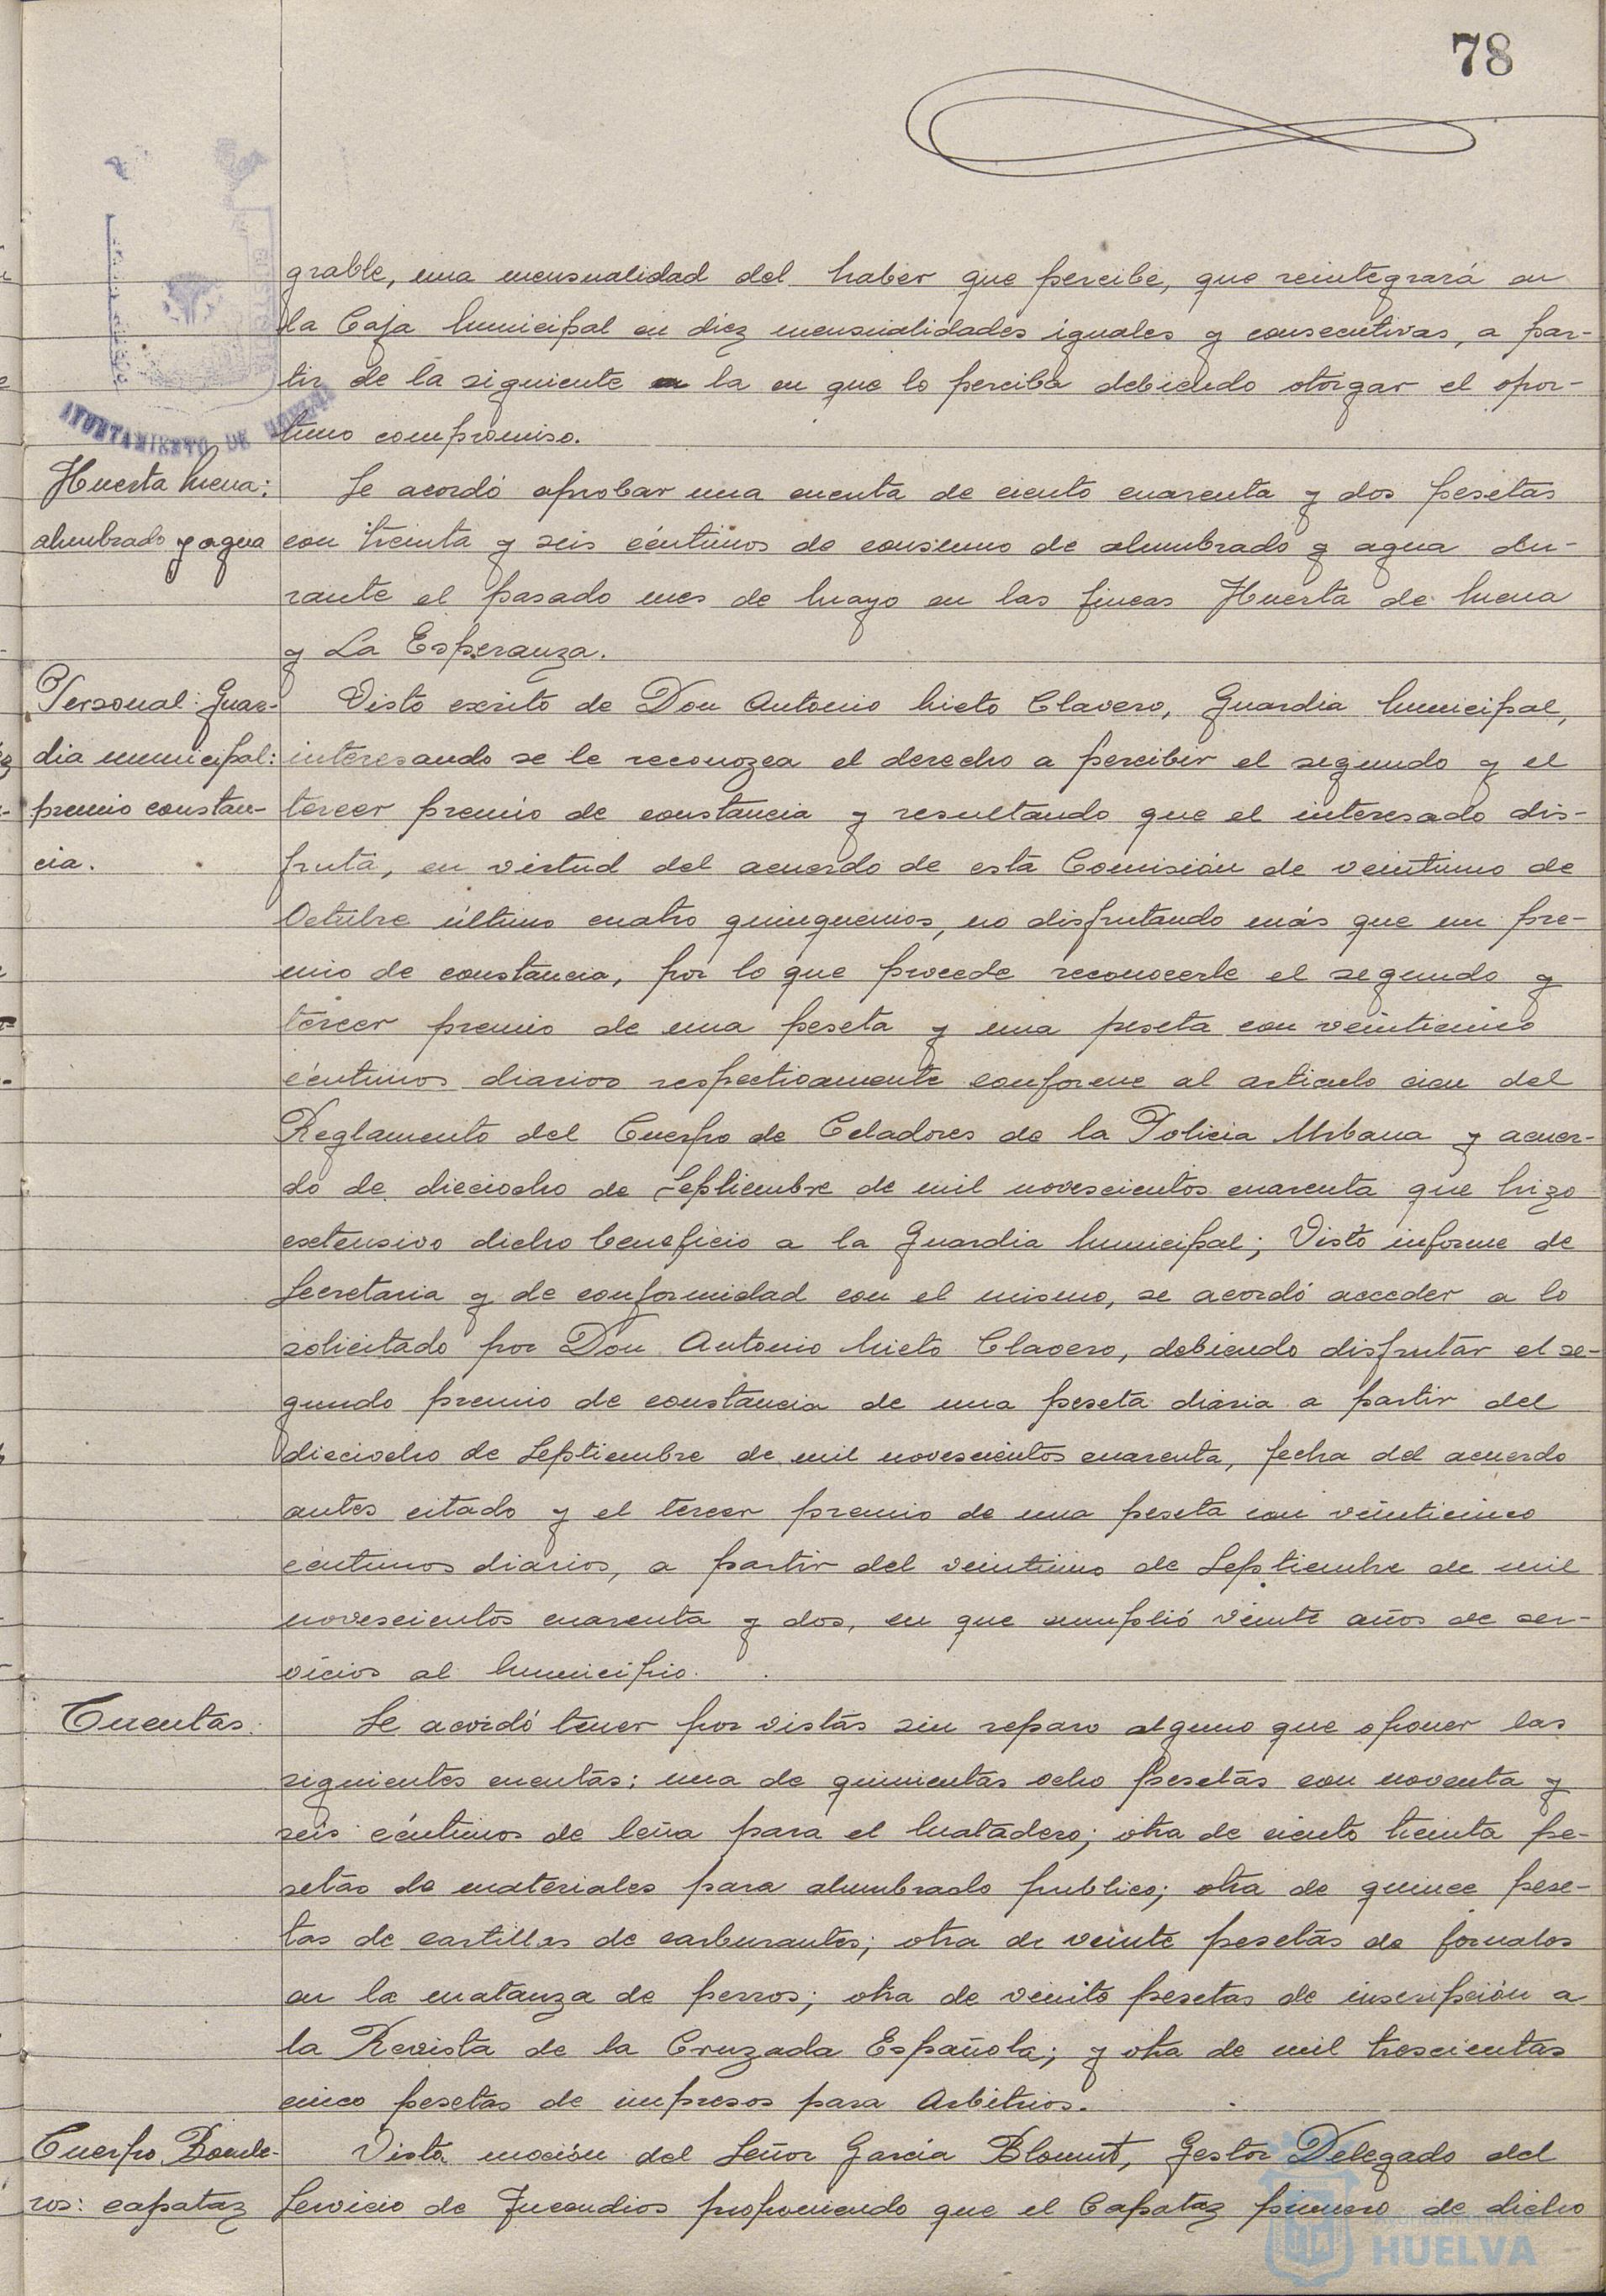 78
AYUNTAMIENTO DE HUELVA
grable, una mensualidad del haber que percibe, que reintegrará en
la Caja Municipal en diez mensualidades iguales y consecutivas, a par-
tir de la siguiente en la en que lo perciba debiendo otorgar el opor-
tuno compromiso.
Huerta Mena:
alumbrado y agua
Se acordó aprobar una cuenta de ciento cuarenta y dos pesetas
con treinta y seis céntimos de consumo de alumbrado y agua du-
rante el pasado mes de Mayo en las fincas Huerta de Mena
y La Esperanza.
Personal: Guar-
dia municipal:
premio constan-
cia.
Visto escrito de Don Antonio Nieto Clavero, Guardia Municipal,
interesando se le reconozca el derecho a percibir el segundo y el
tercer premio de constancia y resultando que el interesado dis-
fruta, en virtud del acuerdo de esta Comisión de veintiuno de
Octubre último cuatro quinquenios, no disfrutando más que un pre-
mio de constancia, por lo que procede reconocerle el segundo y
tercer premio de una peseta y una peseta con veinticinco
céntimos diarios respectivamente conforme al articulo cien del
Reglamento del Cuerpo de Celadores de la Policia Urbana y acuer-
do de dieciocho de Septiembre de mil novescientos cuarenta que hizo
extensivo dicho beneficio a la Guardia Municipal; Visto informe de
Secretaria y de conformidad con el mismo, se acordó acceder a lo
solicitado por Don Antonio Nieto Clavero, debiendo disfrutar el se-
gundo premio de constancia de una peseta diaria a partir del
dieciocho de Septiembre de mil novescientos cuarenta, fecha del acuerdo
antes citado y el tercer premio de una peseta con veinticinco
céntimos diarios, a partir del veintiuno de Septiembre de mil
novescientos cuarenta y dos, en que cumplió veinte años de ser-
vicios al Municipio.
Cuentas.
Se acordó tener por vistas sin reparo alguno que oponer las
siguientes cuentas: una de quinientas ocho pesetas con noventa y
seis céntimos de leña para el Matadero; otra de ciento treinta pe-
setas de materiales para alumbrado publico; otra de quince pese-
tas de cartillas de carburantes; otra de veinte pesetas de jornales
en la matanza de perros; otra de veinte pesetas de inscripción a
la Revista de la Cruzada Española; y otra de mil trescientas
cinco pesetas de impresos para Arbitrios.
Cuerpo Bombe-
ros: capataz
Vista moción del Señor García Blomnt, Gestor Delegado del
Servicio de Incendios proponiendo que el Capataz primero de dicho
HUELVA